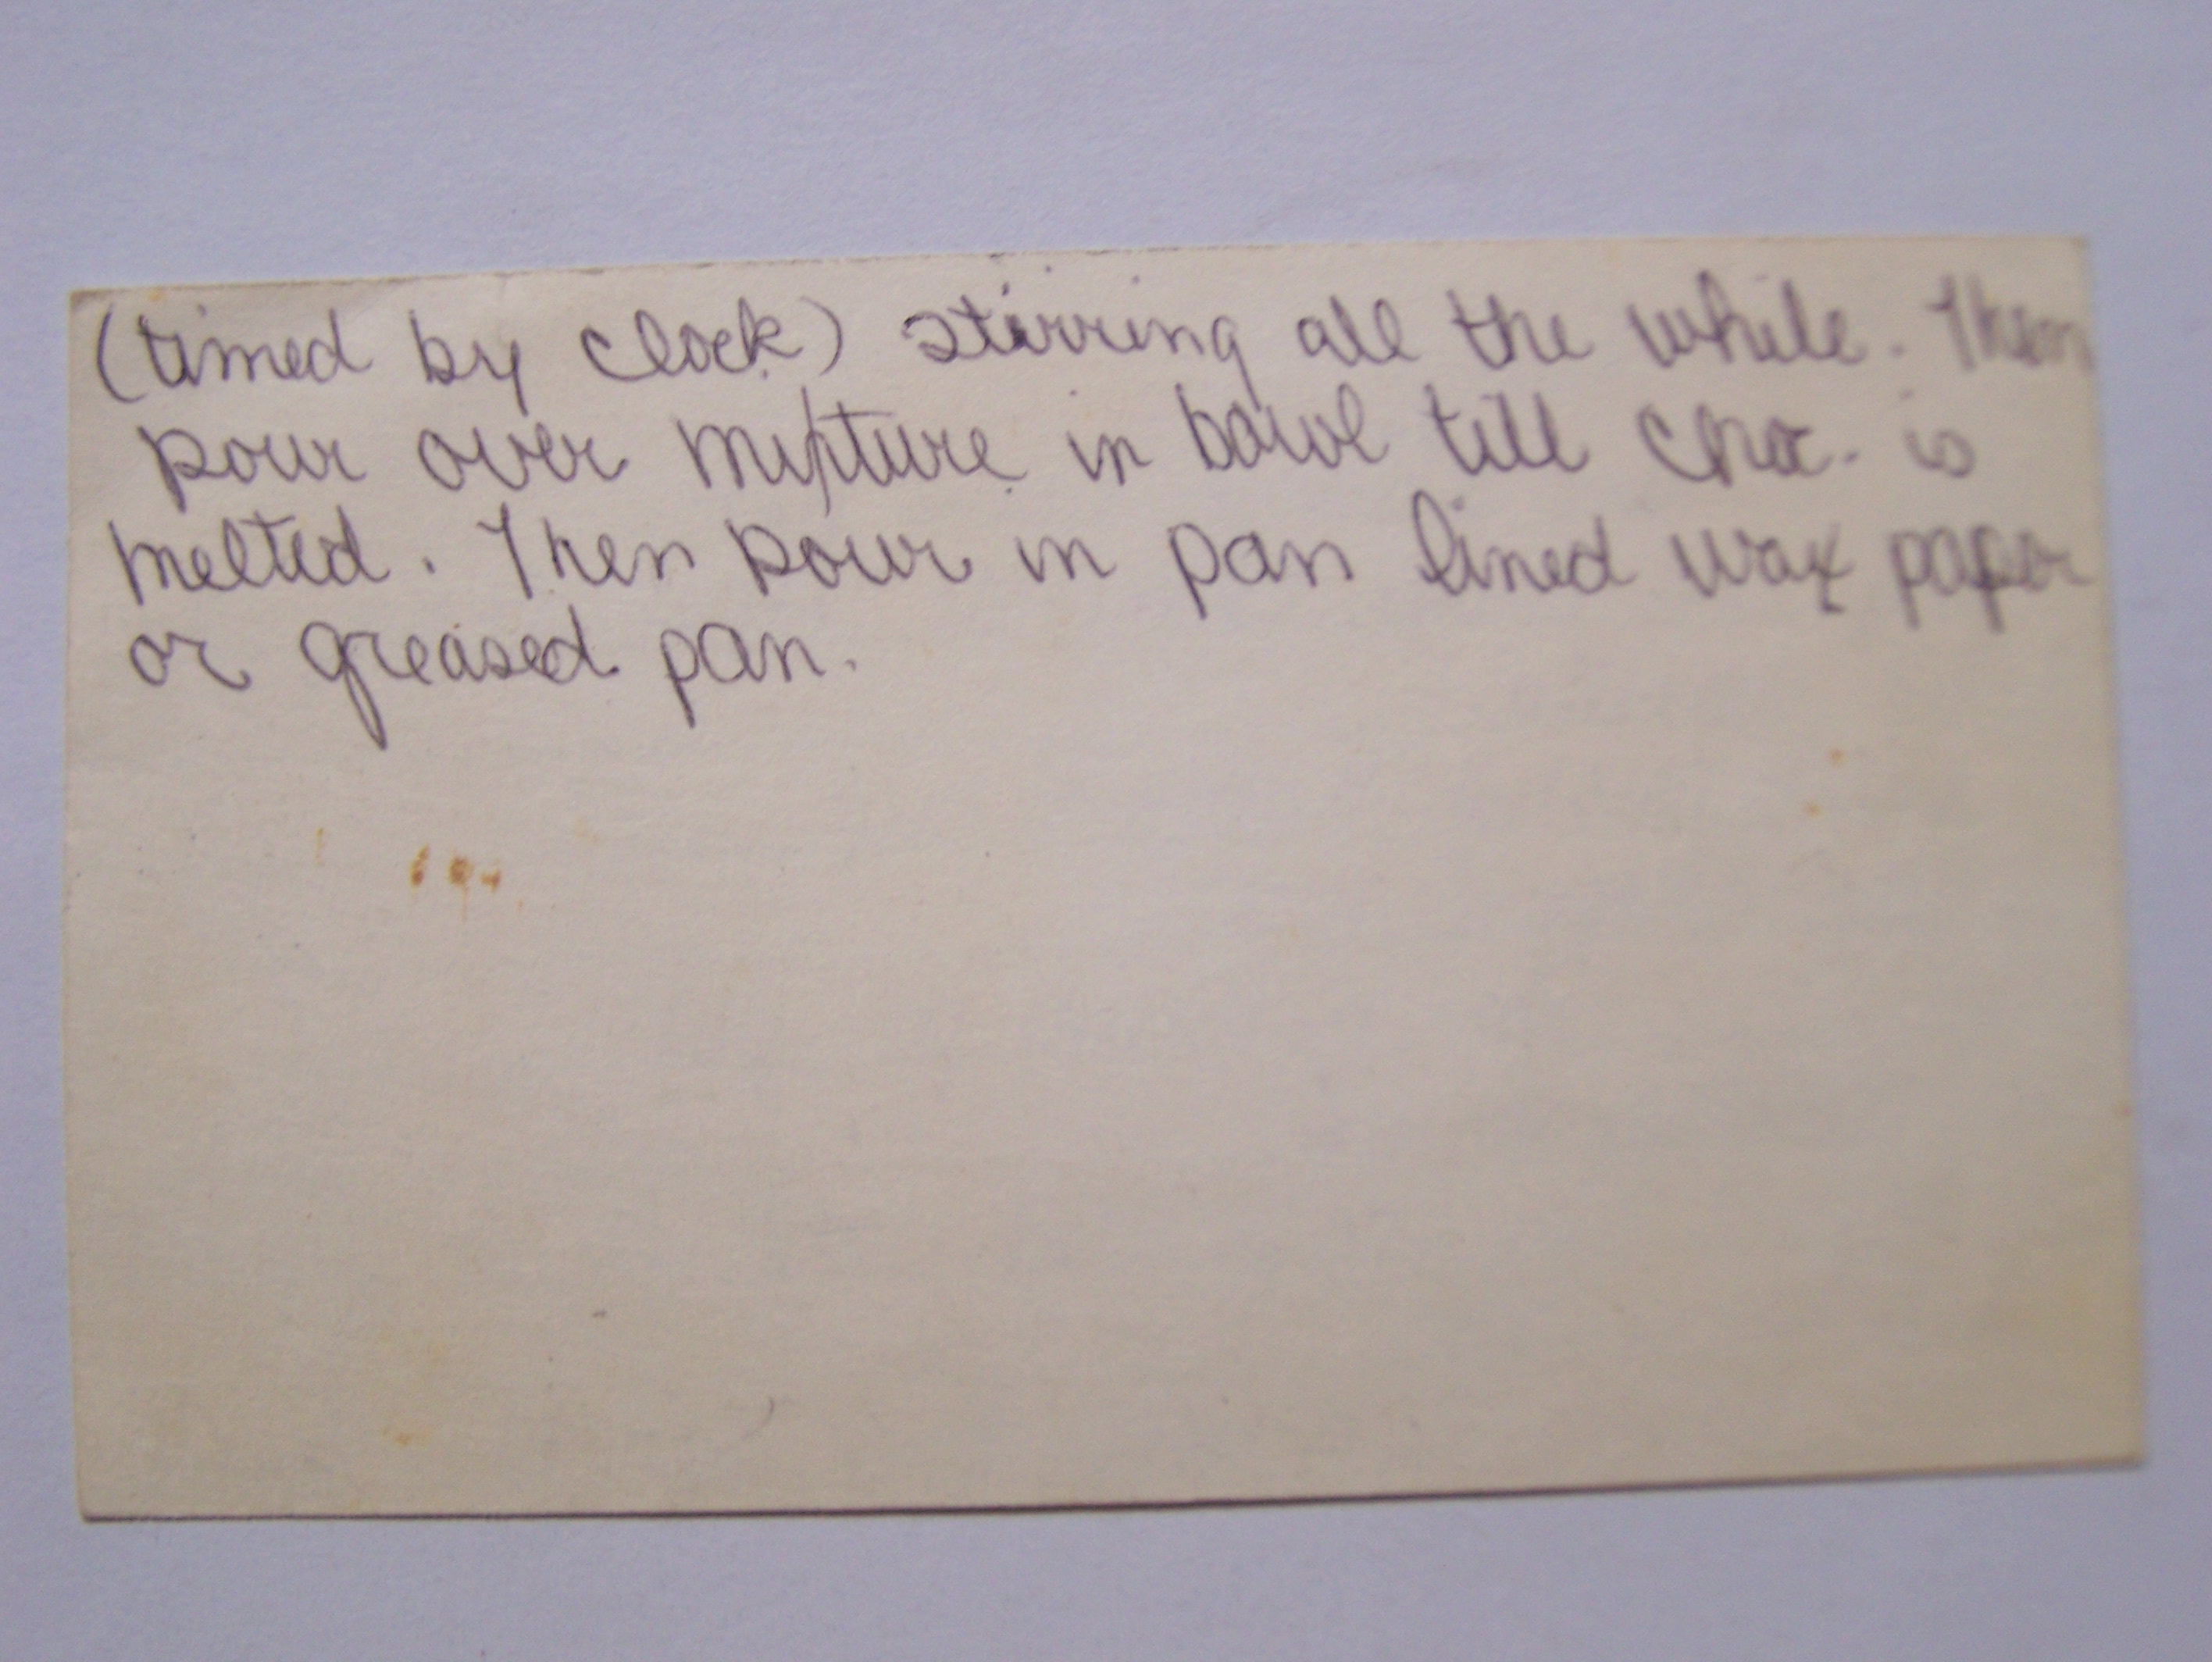 (timed by clock) stirring all the while. Then
pour over mixture in bowl till choc. is
melted. Then pour in pan lined wax paper
or greased pan.